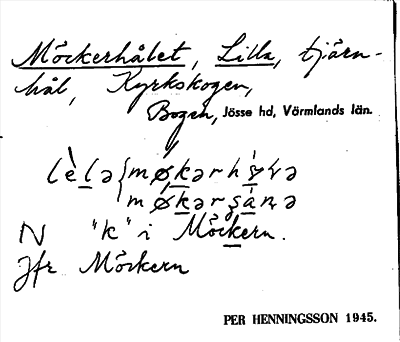 Möckerhålet, Lilla, tjärn-
hål, Kyrkskogen,
Bogen, Jösse hd, Värmlands län.
N "k" i Möckern.
Jfr Möckern
PER HENNINGSSON 1945.